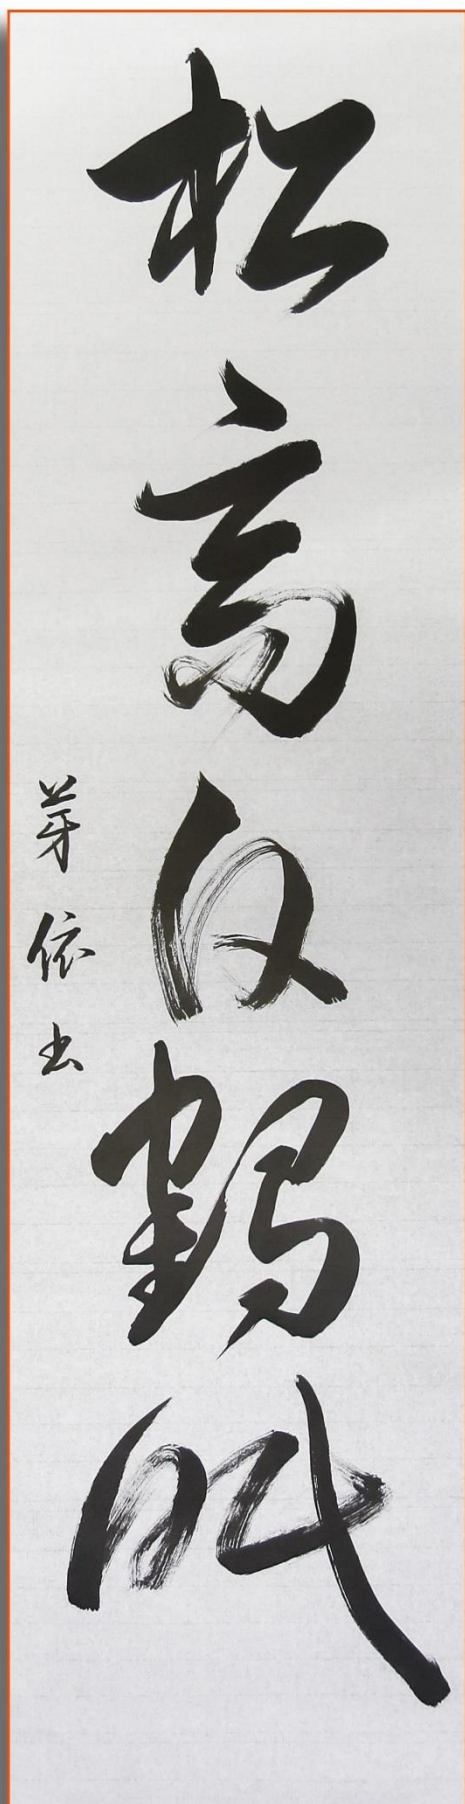 松高白鶴眠
芽依書